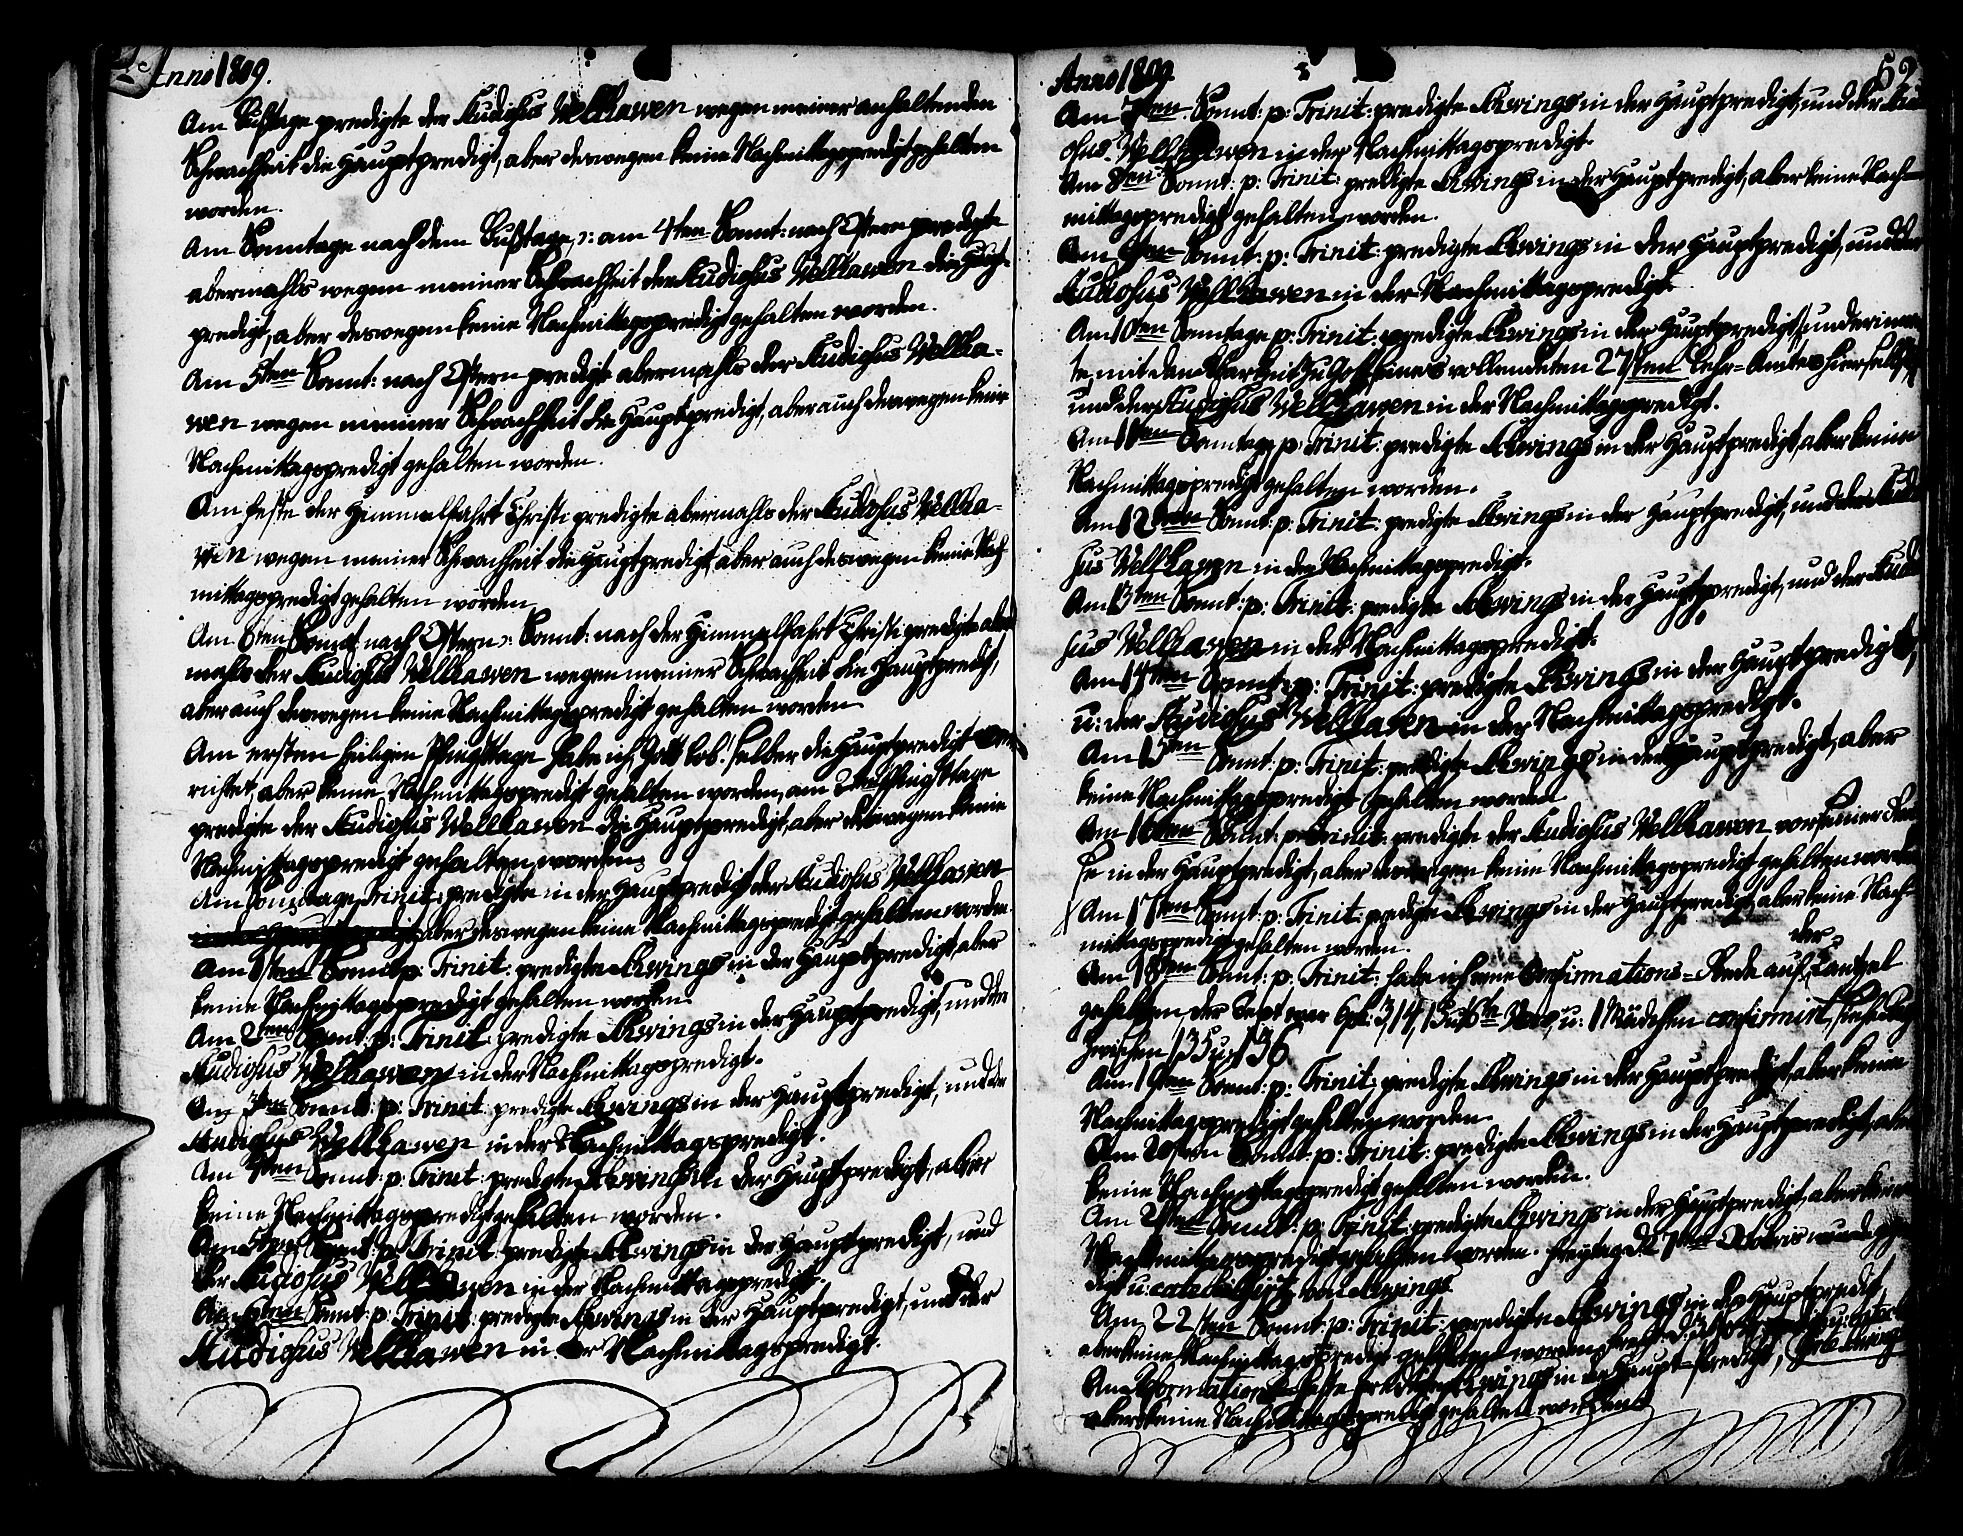 Anno 1809.
Am Bußtage predigte der Studiosus Wellhawen wegen meiner anhaltenden
Schwachheit die Hauptpredigt, aber deswegen keine Nachmittagspredigt gehalten
worden.
Am Sonntage nach dem Bußtage, am 4ten Sonnt: nach Ostern predigte
abermahls wegen meiner Schwachheit der Studiosus Wellhawen die Haupt-
predigt, aber deswegen keine Nachmittagspredigt gehalten worden.
Am 5ten Sonnt: nach Ostern predigte abermahls der Studiosus Wellha-
wen wegen meiner Schwachheit die Hauptpredigt, aber auch deswegen keine
Nachmittagspredigt gehalten worden.
Am Feste der Himmelfahrt Christi predigte abermahls der Studiosus Wellha-
wen wegen meiner Schwachheit die Hauptpredigt, aber auch deswegen keine Nach-
mittagspredigt gehalten worden
Am 6ten Sonnt: nach Ostern Sonnt: nach der Himmelfahrt Christi predigte aber-
mahls der Studiosus Wellhawen wegen meiner Schwachheit die Hauptpredigt,
aber auch deswegen keine Nachmittagspredigt gehalten worden
Am ersten heiligen Pfingsttage habe ich, Gott lob! selber die Hauptpredigt ver-
richtet, aber keine Nachmittagspredigt gehalten worden, am 2ten Pfingsttage
predigte der Studiosus Wellhawen die Hauptpredigt, aber deswegen keine
Nachmittagspredigt gehalten worden.
Am Sonntage Trinit: predigte in der Hauptpredigt der Studiosus Wellhawen
aber deswegen keine Nachmittagspredigt gehalten worden.
Am 1sten Sonnt: p: Trinit: predigte Schwings in der Hauptpredigt, aber
keine Nachmittagspredigt gehalten worden.
Am 2ten Sonnt: p: Trinit: predigte Schwings in der Hauptpredigt, und der
Studiosus Wellhawen in der Nachmittagspredigt.
Am 3ten Sonnt: p: Trinit: predigte Schwings in der Hauptpredigt, und der
Studiosus Wellhawen in der Nachmittagspredigt.
Am 4ten Sonnt: p: Trinit: predigte Schwings in der Hauptpredigt, aber
keine Nachmittagspredigt gehalten worden.
Am 5ten Sonnt: p: Trinit: predigte Schwings in der Hauptpredigt, und
der Studiosus Wellhawen in der Nachmittagspredigt.
Am 6ten Sonnt: p: Trinit: predigte Schwings in der Hauptpredigt, und der
Studiosus Wellhawen in der Nachmittagspredigt.
Anno 1809.
52
Am 7ten Sonnt: p: Trinit: predigte Schwings in der Hauptpredigt, und der Studi-
osus Wellhawen in der Nachmittagspredigt.
Am 8ten Sonnt: p: Trinit: predigte Schwings in der Hauptpredigt, aber keine Nach-
mittagspredigt gehalten worden.
Am 9ten Sonnt: p: Trinit: predigte Schwings in der Hauptpredigt, und der
Studiosus Wellhawen in der Nachmittagspredigt.
Am 10ten Sonntage p: Trinit: predigte Schwings in der Hauptpredigt, und
te, mit vollendeten 27sten Lehr-Amtes hierselbst,
und der Studiosus Wellhawen in der Nachmittagspredigt.
Am 11ten Sonntage p: Trinit: predigte Schwings in der Hauptpredigt, aber keine
Nachmittagspredigt gehalten worden.
Am 12ten Sonnt: p: Trinit: predigte Schwings in der Hauptpredigt, und der Studio-
sus Wellhawen in der Nachmittagspredigt.
Am 13ten Sonnt: p: Trinit: predigte Schwings in der Hauptpredigt, und der Studio-
sus Wellhawen in der Nachmittagspredigt.
Am 14ten Sonnt: p: Trinit: predigte Schwings in der Hauptpredigt,
u: der Studiosus Wellhawen in der Nachmittagspredigt.
Am 15ten Sonnt: p: Trinit: predigte Schwings in der Hauptpredigt, aber
keine Nachmittagspredigt gehalten worden
Am 16ten Sonnt: p: Trinit: predigte der Studiosus Wellhawen vor seiner Rei-
se in der Hauptpredigt, aber deswegen keine Nachmittagspredigt gehalten worden
Am 17ten Sonnt: p: Trinit: predigte Schwings in der Hauptpredigt, aber keine Nach-
mittagspredigt gehalten worden.
Am 18ten Sonnt: p: Trinit: habe ich eine Confirmations-Rede auf der Cantzel
gehalten, der Text war u: 1 Mädchen confirmirt,
zwischen 135 u: 136
Am 19ten Sonnt: p: Trinit: predigte Schwings in der Hauptpredigt, aber keine
Nachmittagspredigt gehalten worden.
Am 20sten Sonnt: p: Trinit: predigte Schwings in der Hauptpredigt, aber
keine Nachmittagspredigt gehalten worden.
Am 21sten Sonnt: p: Trinit: predigte Schwings in der Hauptpredigt, aber keine
Nachmittagspredigt gehalten worden. Freytag d. Octobris
u: catechisirt von Schwings
Am 22sten Sonnt: p: Trinit: predigte Schwings in der Hauptpredigt,
aber keine Nachmittagspredigt gehalten worden
Am Reformations-Feste predigte Schwings in der Haupt-Predigt,
aber keine Nachmittagspredigt gehalten worden